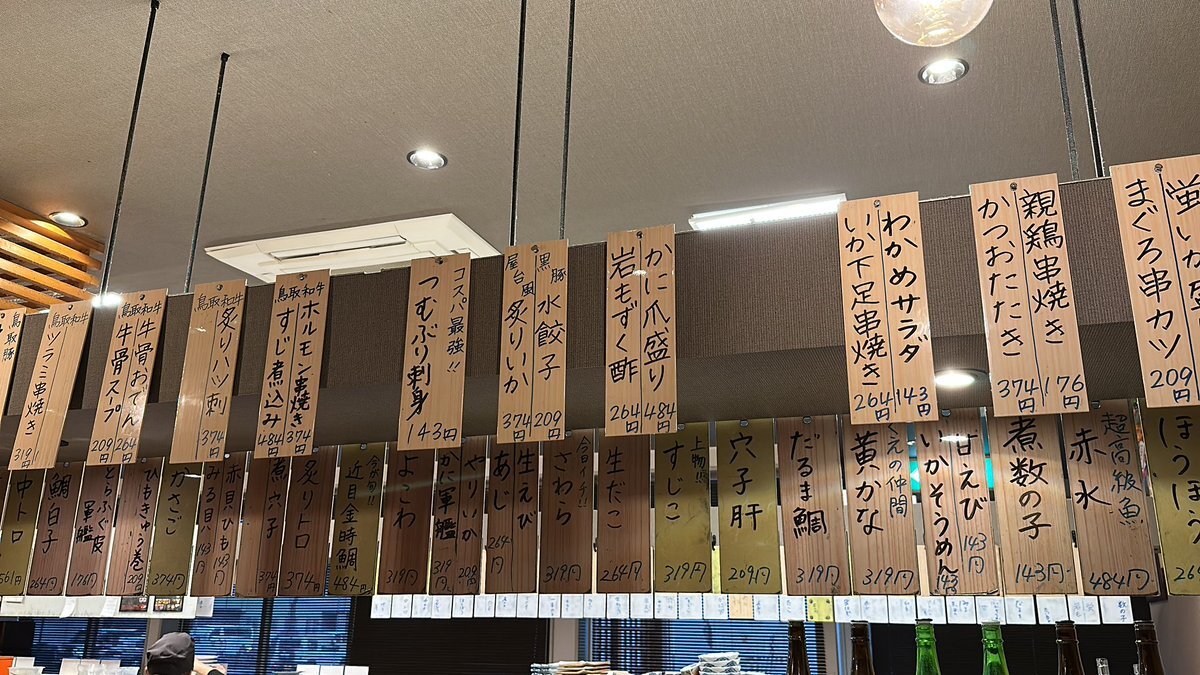 鳥取豚
鳥取和牛
ツラミ串焼き
鳥取和牛
牛骨おでん 264円
牛骨スープ 209円
鳥取和牛
炙りハツ刺 374円
鳥取和牛
ホルモン串焼き 374円
すじ煮込み 484円
コスパ最強!!
つむぶり刺身 143円
黒豚 水餃子 209円
屋台風 炙りいか 374円
かに爪盛り 484円
岩もずく酢 264円
わかめサラダ 143円
いか下足串焼き 264円
親鶏串焼き 176円
かつおたたき 374円
蛍いか
まぐろ串カツ 209円
中トロ 561円
鯛白子 264円
とらふぐ皮
軍艦 176円
ひもきゅう巻 209円
かさご 374円
赤貝ひも 143円
みる貝 143円
煮穴子 374円
炙りトロ 374円
今旬!!
近目金時鯛 484円
よこわ 319円
やりいか 209円
かに軍艦 319円
生えび
あじ 264円
今イチ!!
さわら 319円
生だこ 264円
上物!!
すじこ 319円
穴子肝 209円
だるま鯛 319円
くえの仲間
黄かな 319円
甘えび 143円
いかそうめん 143
煮数の子 143円
超高級魚
赤水 484円
ほうぼう